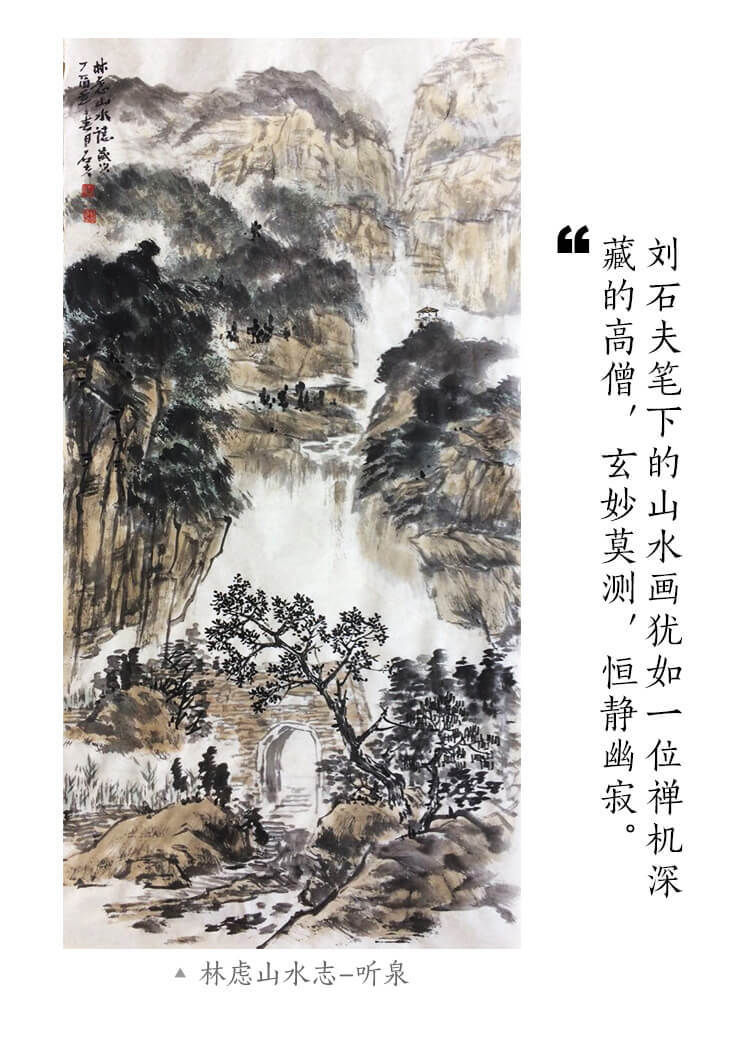 林虑山水志
丁酉
刘石夫笔下的山水画犹如一位禅机深
藏的高僧，玄妙莫测，恒静幽寂。
▲ 林虑山水志-听泉